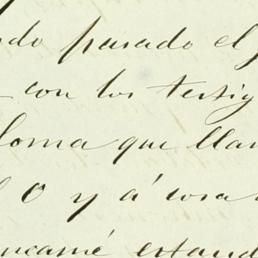 ndo pasado el
con los testig
loma que llam
l O y á cosa
ncamé estand